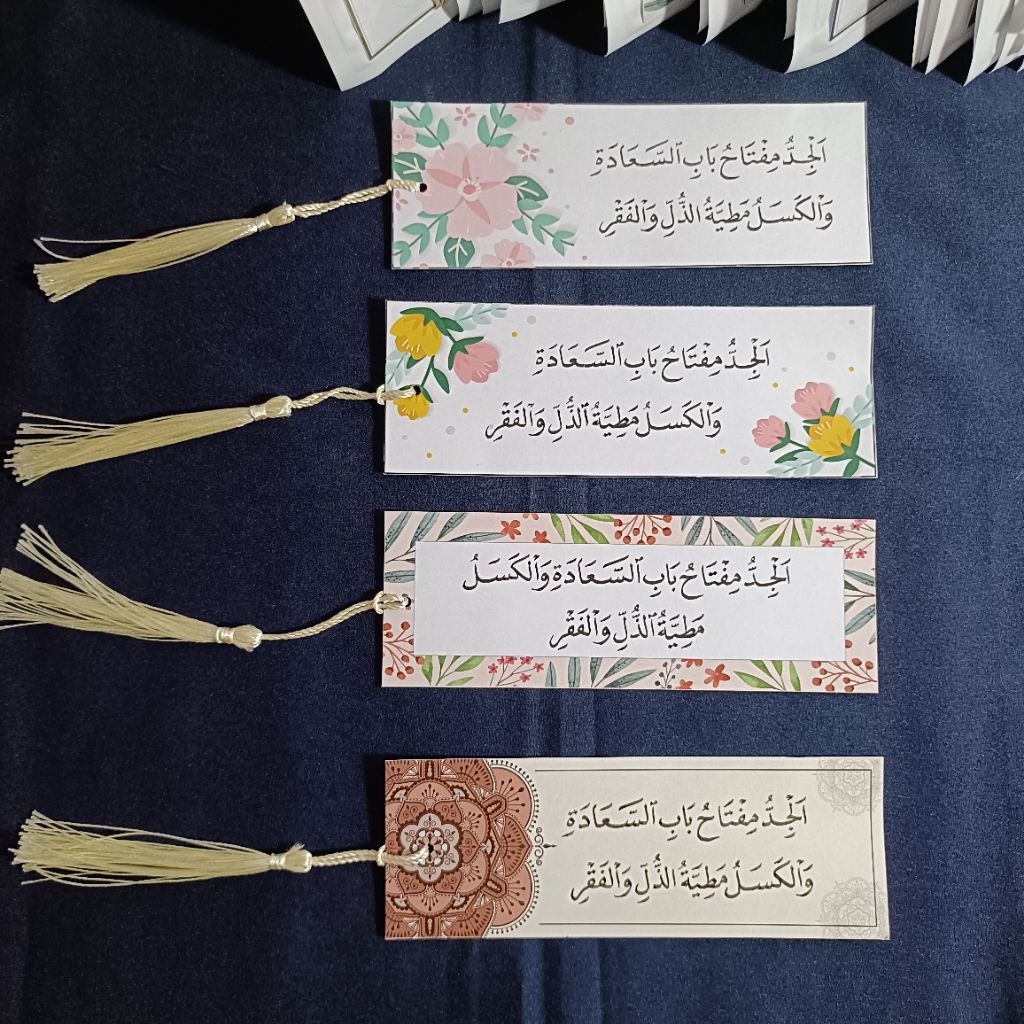 اَلْجِدُّ مِفْتَاحُ بَابِ ٱلسَّعَادَةِ
وَٱلْكَسَلُ مَطِيَّةُ ٱلذُّلِّ وَٱلْفَقْرِ
اَلْجِدُّ مِفْتَاحُ بَابِ ٱلسَّعَادَةِ
وَٱلْكَسَلُ مَطِيَّةُ ٱلذُّلِّ وَٱلْفَقْرِ
اَلْجِدُّ مِفْتَاحُ بَابِ ٱلسَّعَادَةِ وَٱلْكَسَلُ
مَطِيَّةُ ٱلذُّلِّ وَٱلْفَقْرِ
اَلْجِدُّ مِفْتَاحُ بَابِ ٱلسَّعَادَةِ
وَٱلْكَسَلُ مَطِيَّةُ ٱلذُّلِّ وَٱلْفَقْرِ